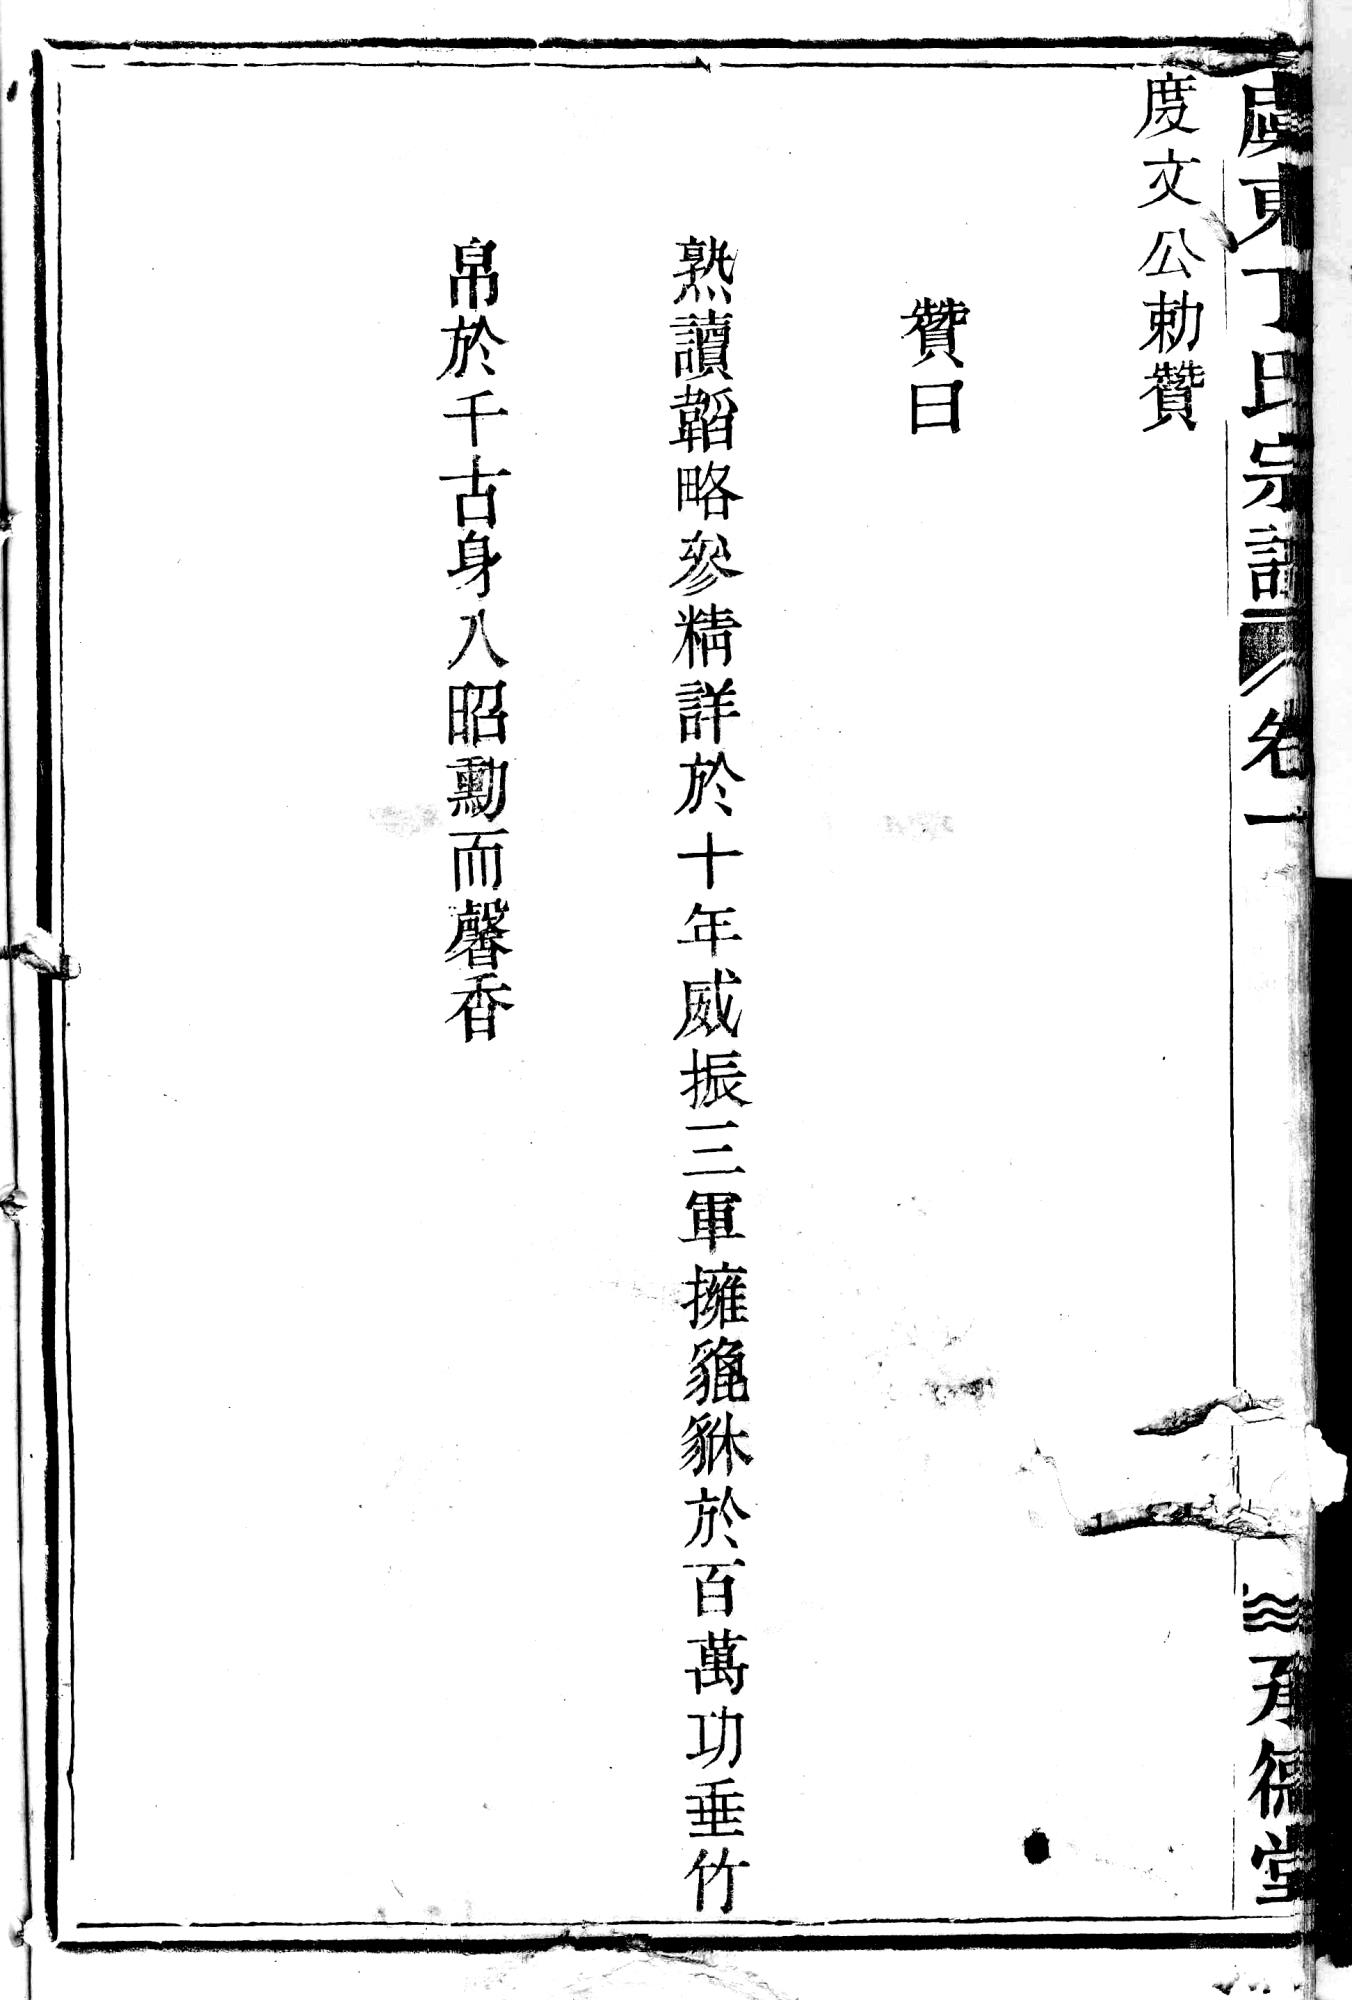 虞東丁氏宗譜 卷一 承德堂
度文公勅贊
贊曰
熟讀韜略參精詳於十年威振三軍擁貔貅於百萬功垂竹
帛於千古身八昭勳而馨香